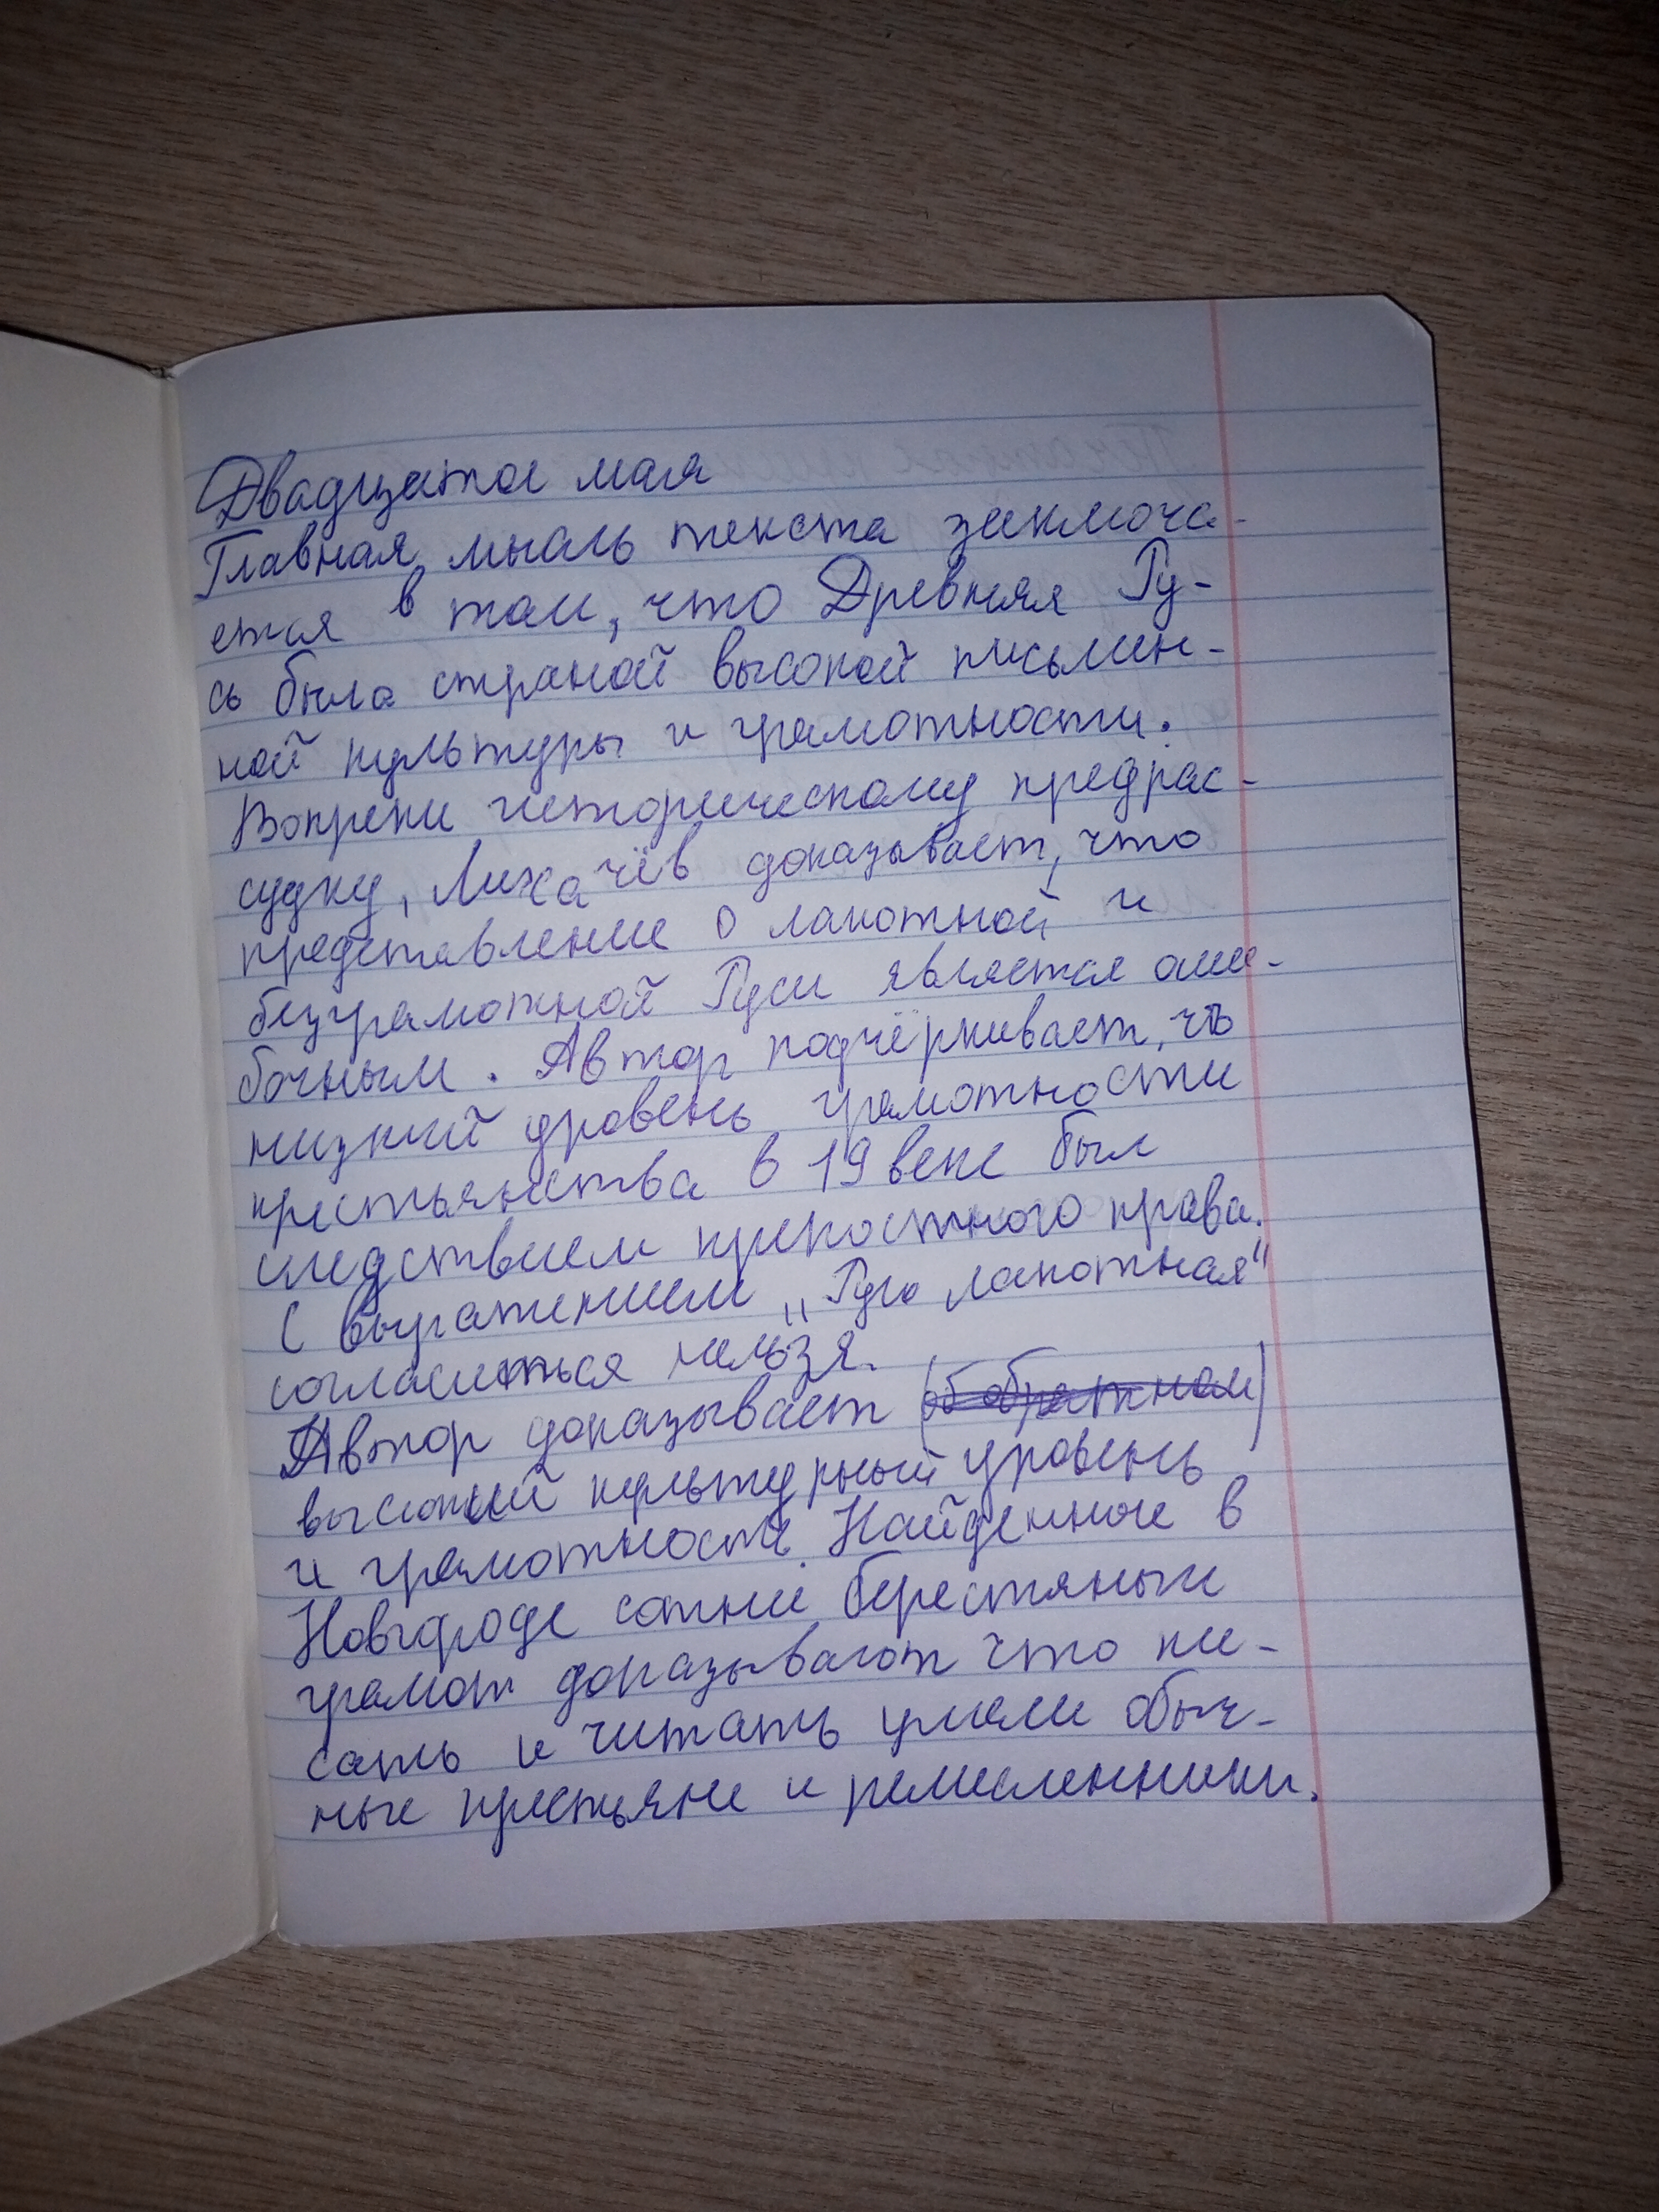 Двадцатое мая
Главная мысль текста заключа-
ется в том, что Древняя Ру-
сь была страной высокой письмен-
ной культуры и грамотности.
Вопреки историческому предрас-
судку, Лихачёв доказывает, что
представление о лапотной и
безграмотной Руси является оши-
бочным. Автор подчёркивает, что
низкий уровень грамотности
крестьянства в 19 веке был
следствием крепостного права.
С выражением „Русь лапотная"
согласиться нельзя.
Автор доказывает (об обратном)
высокий культурный уровень
и грамотность. Найденные в
Новгороде сотни берестяных
грамот доказывают что пи-
сать и читать умели обыч-
ные крестьяне и ремесленники.